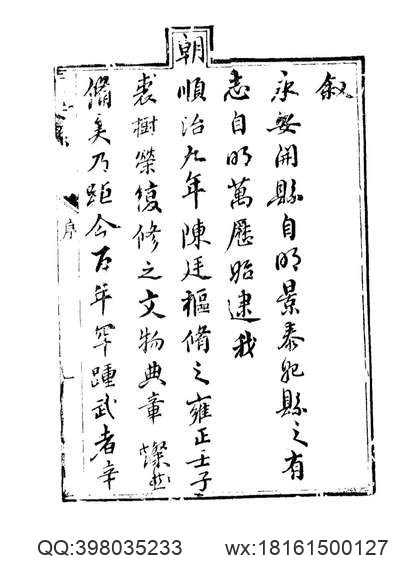 敘
永安開縣自明景泰始縣之有
志自明萬曆始逮我
朝順治九年陳廷樞修之雍正壬子
裘樹榮復修之文物典章燦然
備美乃距今百年罕踵武者辛
序
QQ:398035233 wx:18161500127